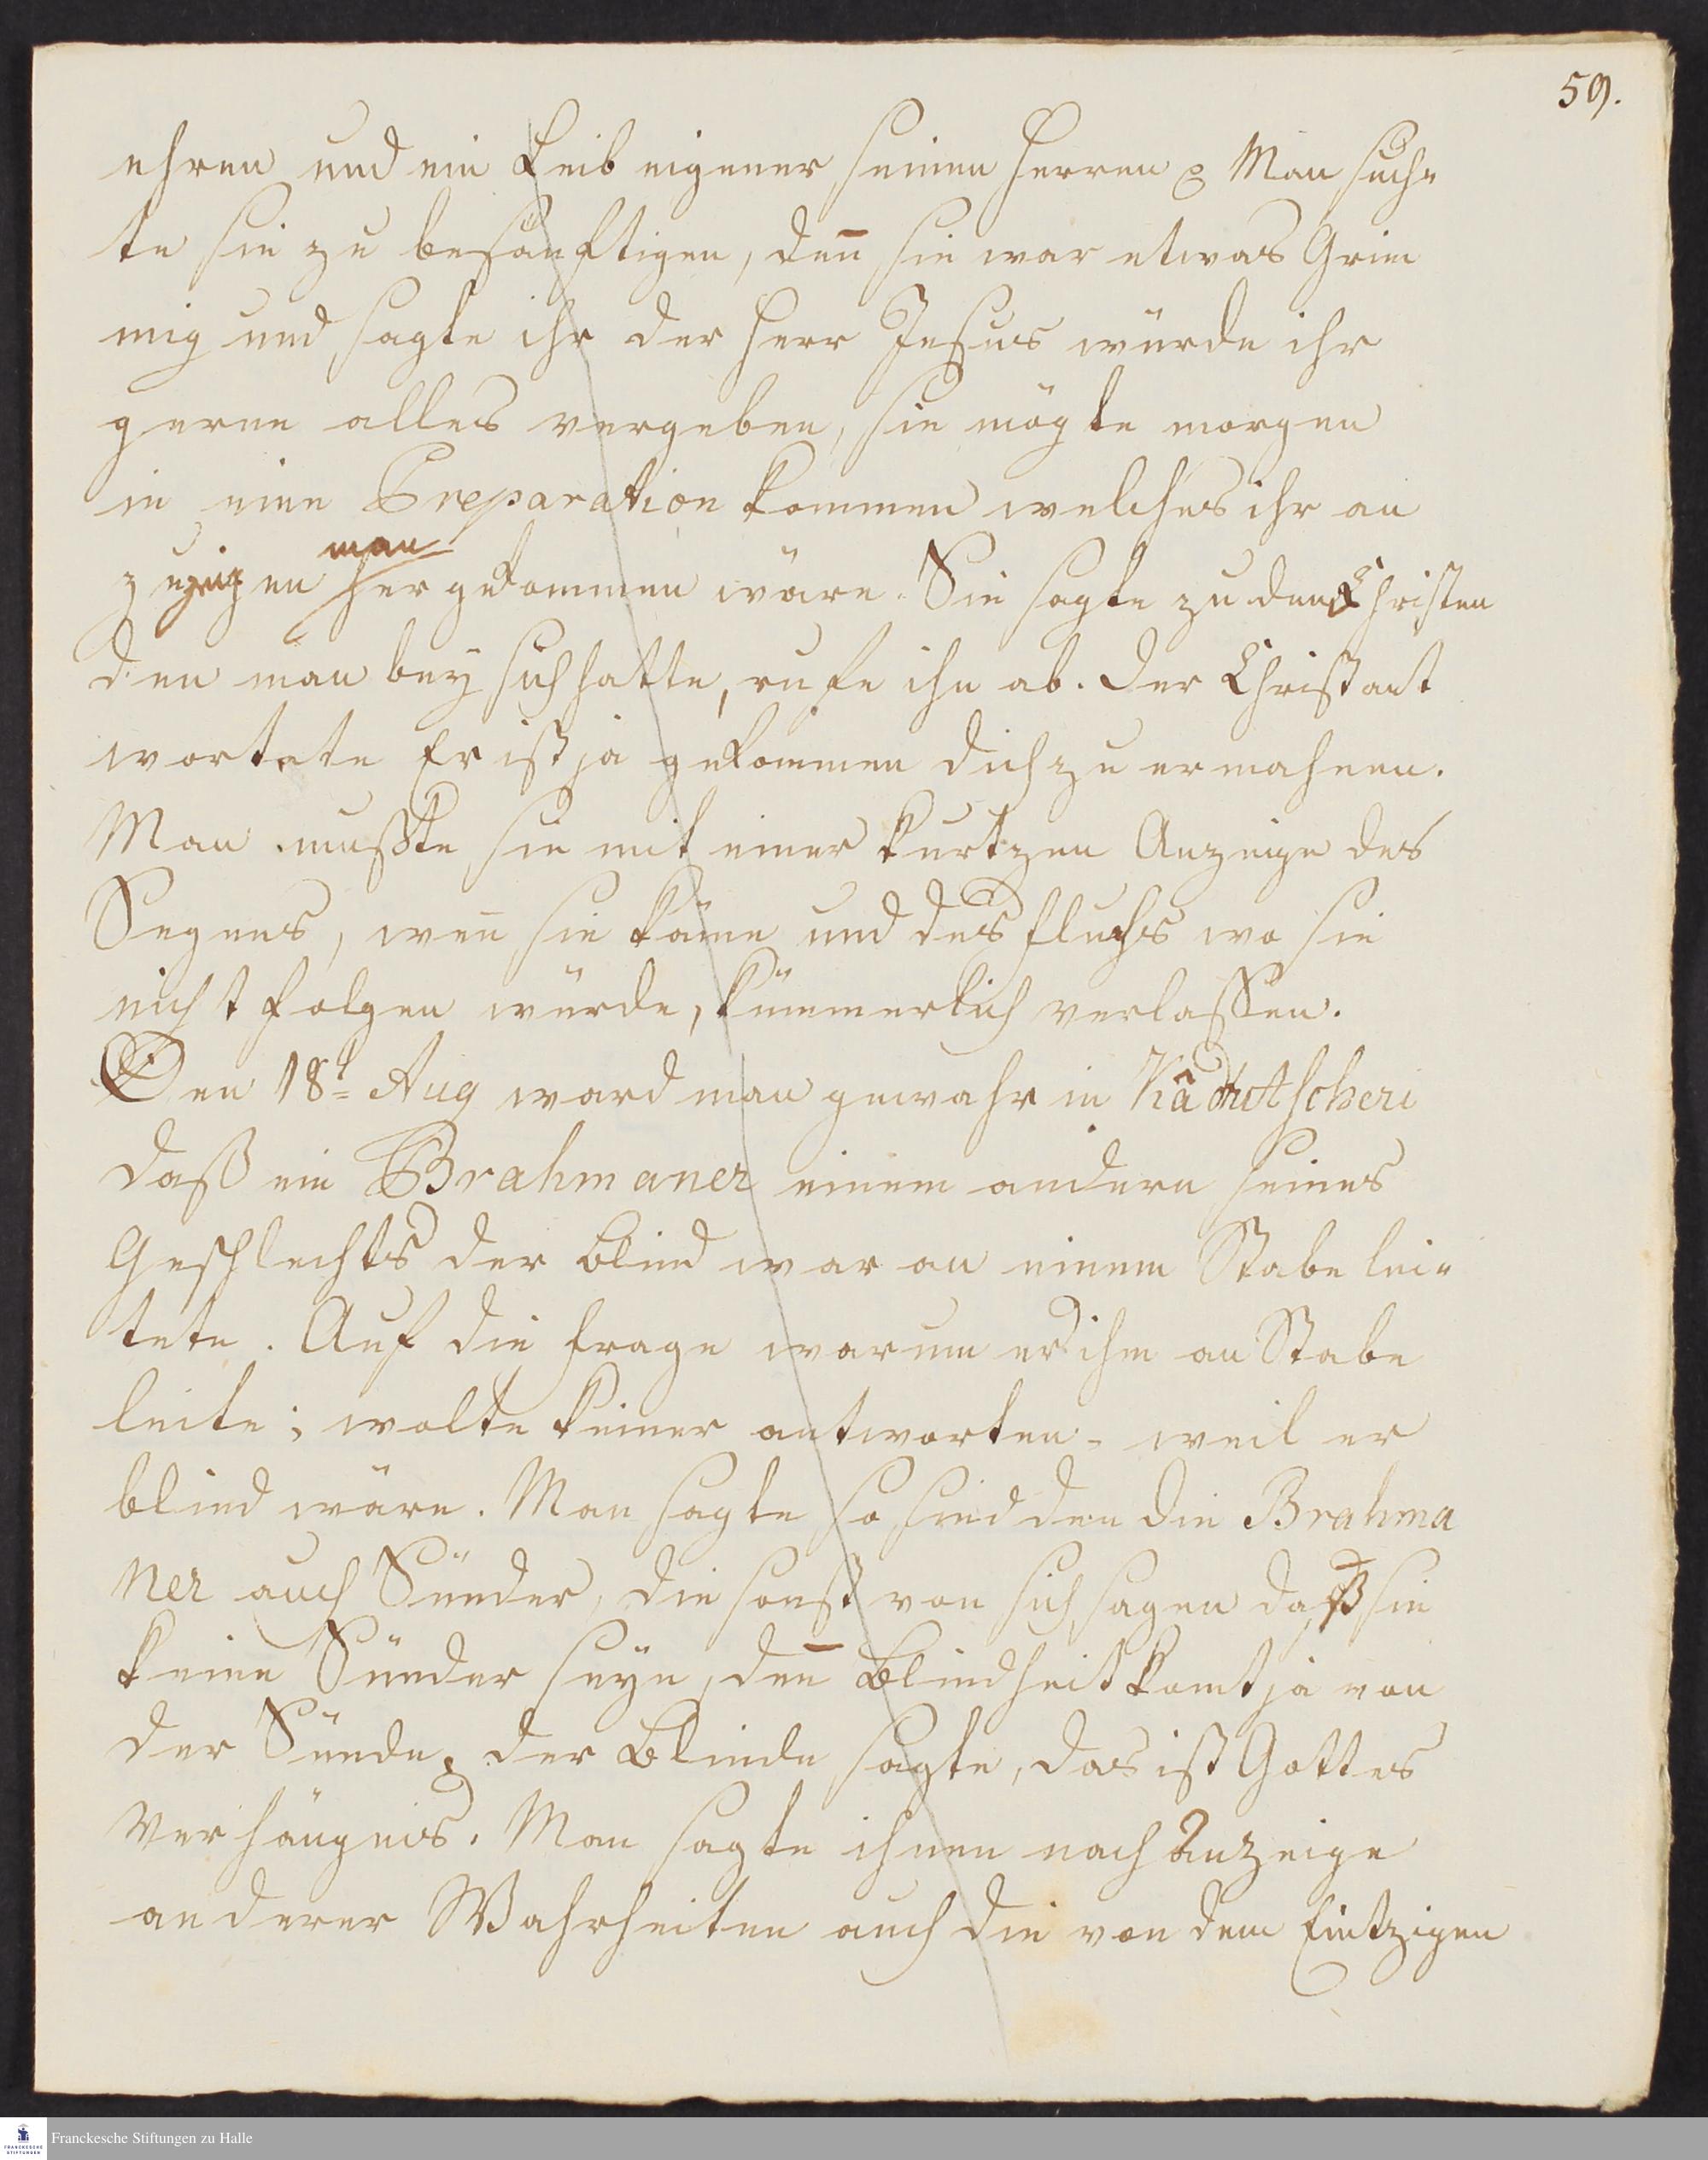 59.
ehren und ein Leib eigener seinen Herren Man such-
te sie zu besänftigen, deñ sie war etwas Grim
mig und sagte ihr der Herr Jesus würde ihr
gerne alles vergeben, sie mögte morgen
in eine Preparation kommen welches ihr an
man
zuzeigen her gekommen wäre. Sie sagte zu dem Christen
den man bey sich hatte, rufe ihn ab. Der Christ ant
wortete Er ist ja gekommen dich zu ermahnen.
Man mußte sie mit einer kurtzen Anzeige des
Segens, weñ sie käme und des Fluchs wo sie
nicht folgen würde, kümmerlich verlaßen.
Den 18t Aug ward man gewahr in
daß ein Brahmaner einem andern seines
Geschlechts der blind war an einem Stabe lei-
tete. Auf die Frage warum er ihm an Stabe
leite; wolte keiner antworten weil er
blind wäre. Man sagte so sind den die Brahma
ner auch Sünder, die sonst von sich sagen daß sie
keine Sünder seyn, deñ Blindheit komt ja von
der Sünde. der Blinde sagte, das ist Gottes
Verhängnis. Man sagte ihnen nach Anzeige
anderer Wahrheiten auch die von dem Eintzigen
FRANCKESCHE STIFTUNGEN
Franckesche Stiftungen zu Halle